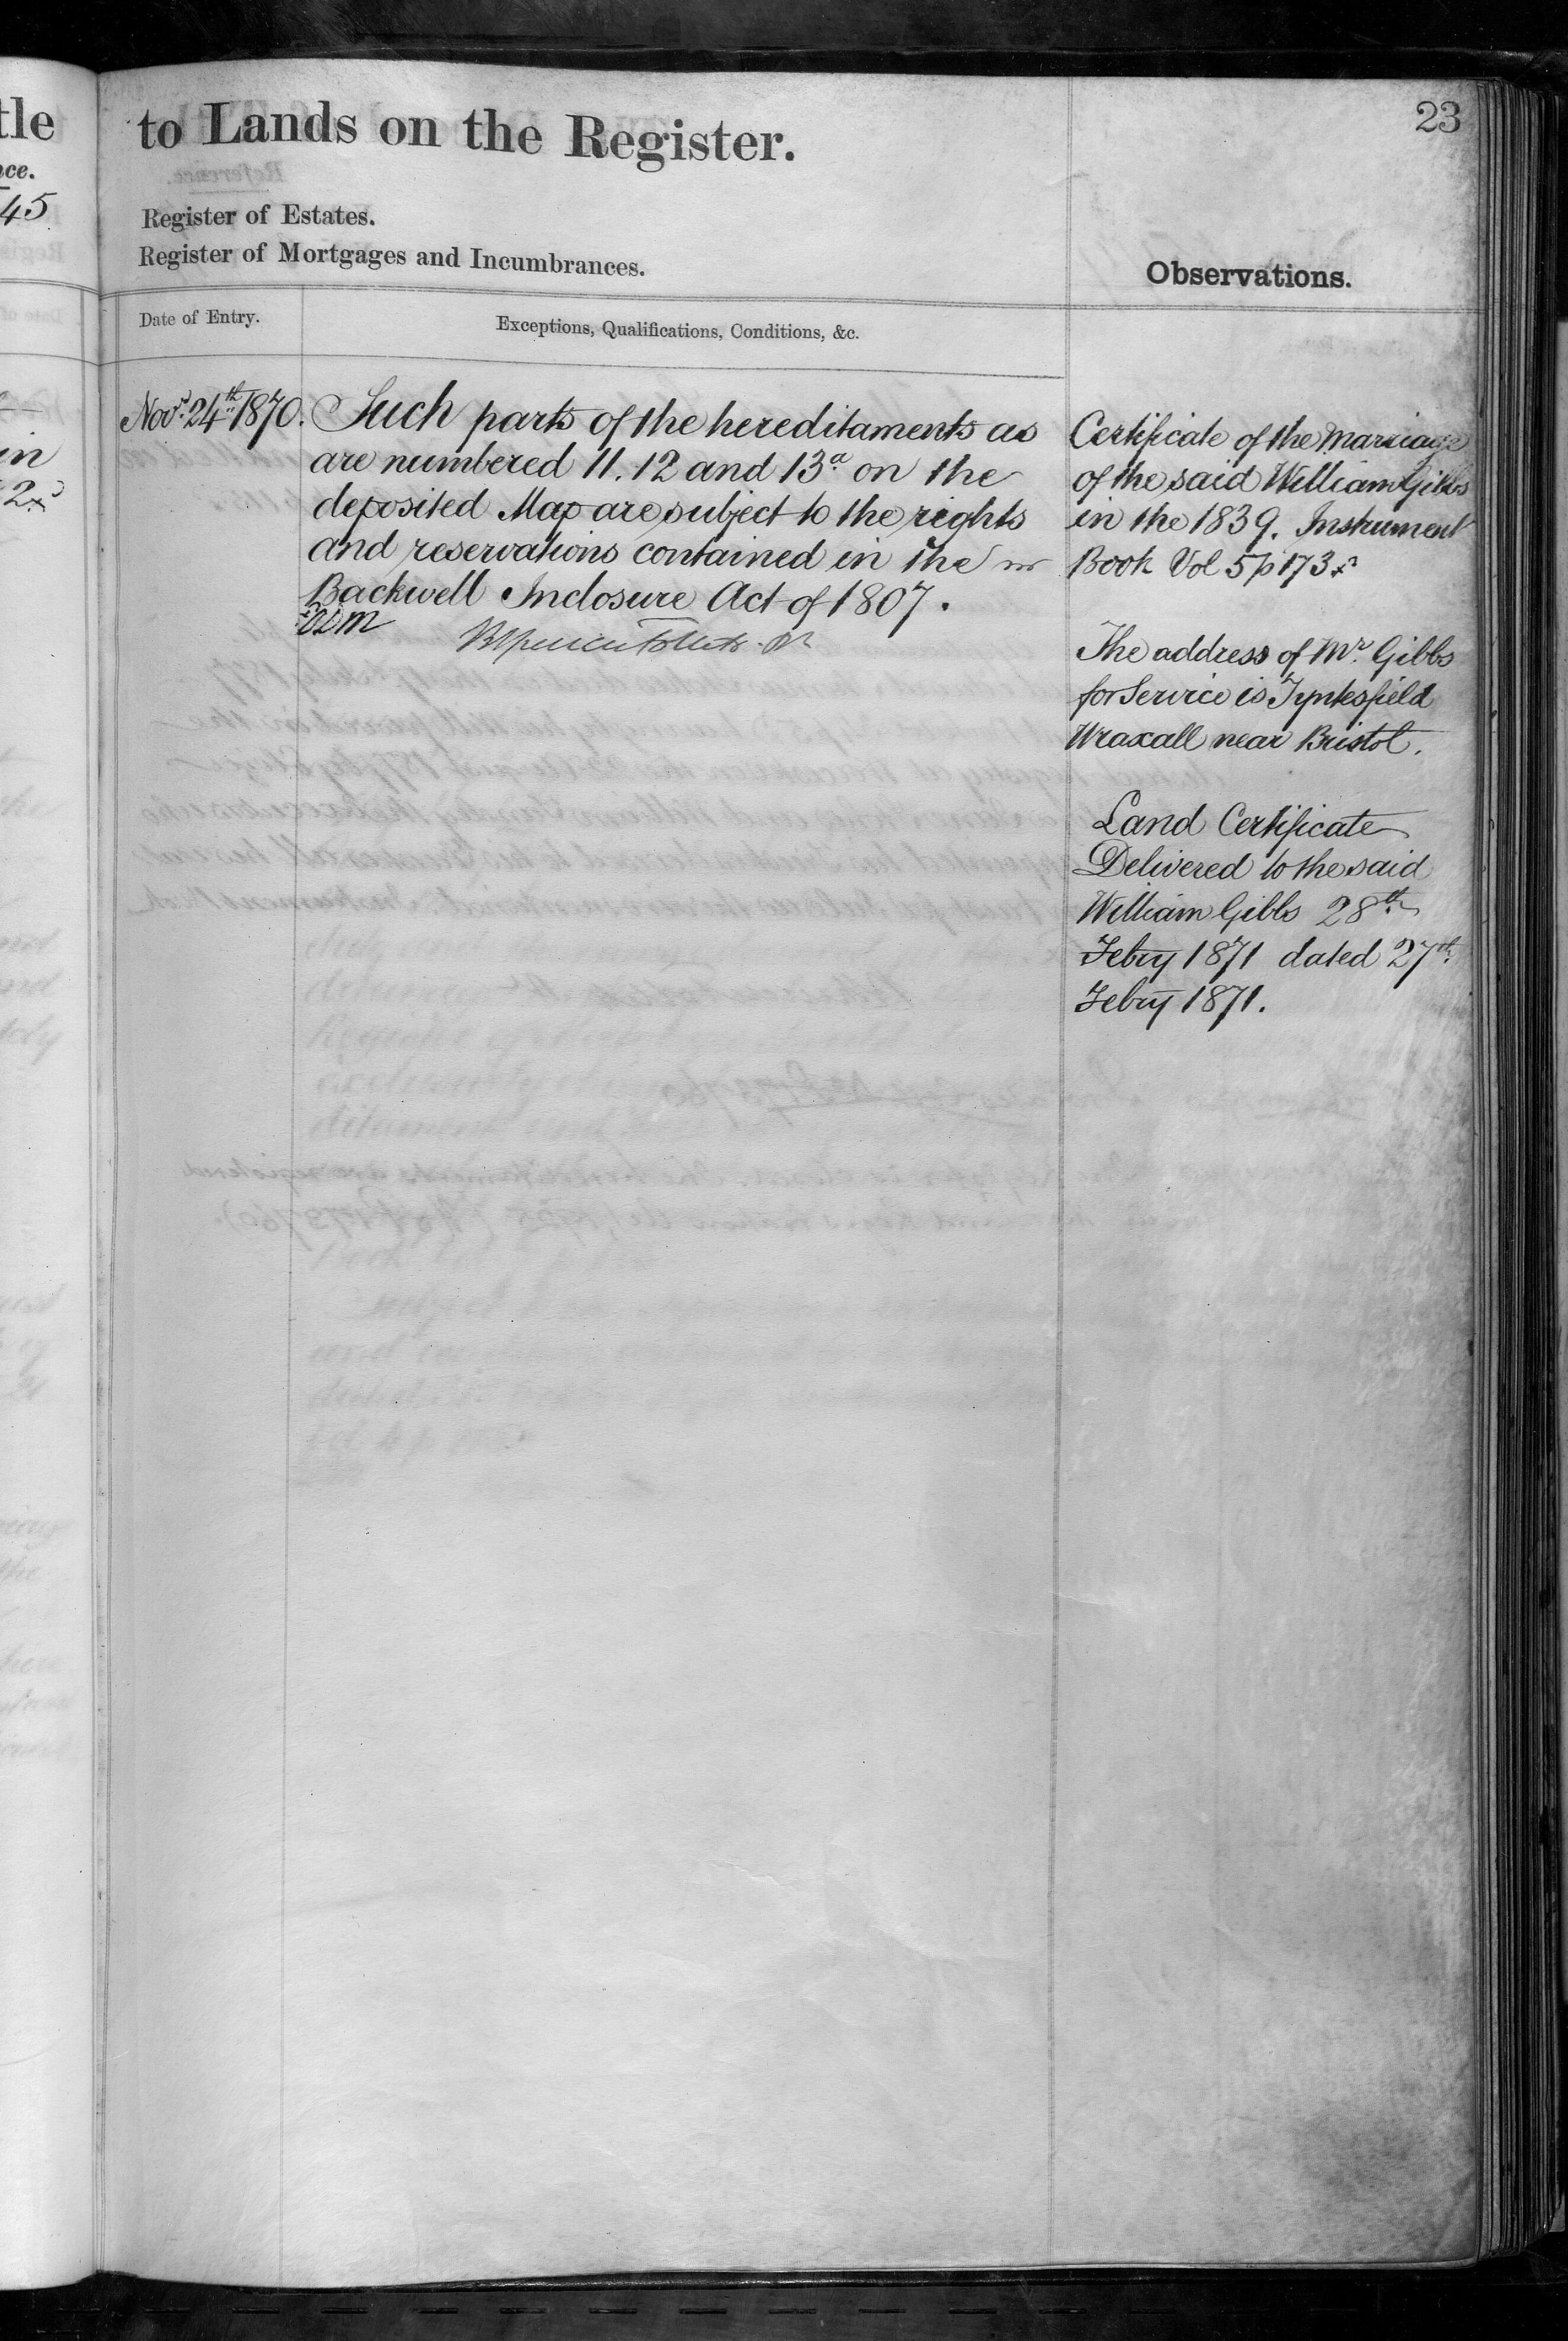 tle
to Lands on the Register.
23
nce.
45
Register of Estates.
Register of Mortgages and Incumbrances.
Observations.
Date of Entry.
Exceptions, Qualifications, Conditions, &c.
Novr. 24th 1870.
Such parts of the hereditaments as
are numbered 11. 12 and 13a on the
deposited Map are subject to the rights
and reservations contained in the
Backwell Inclosure Act of 1807.
in
2
Certificate of the Marriage
of the said William Gibbs
in the 1839. Instrument
Book Vol 5 p 173
The address of Mr. Gibbs
for Service is Tyntesfield
Wraxall near Bristol.
Land Certificate
Delivered to the said
William Gibbs 28th
Febry 1871 dated 27th
Febry 1871.